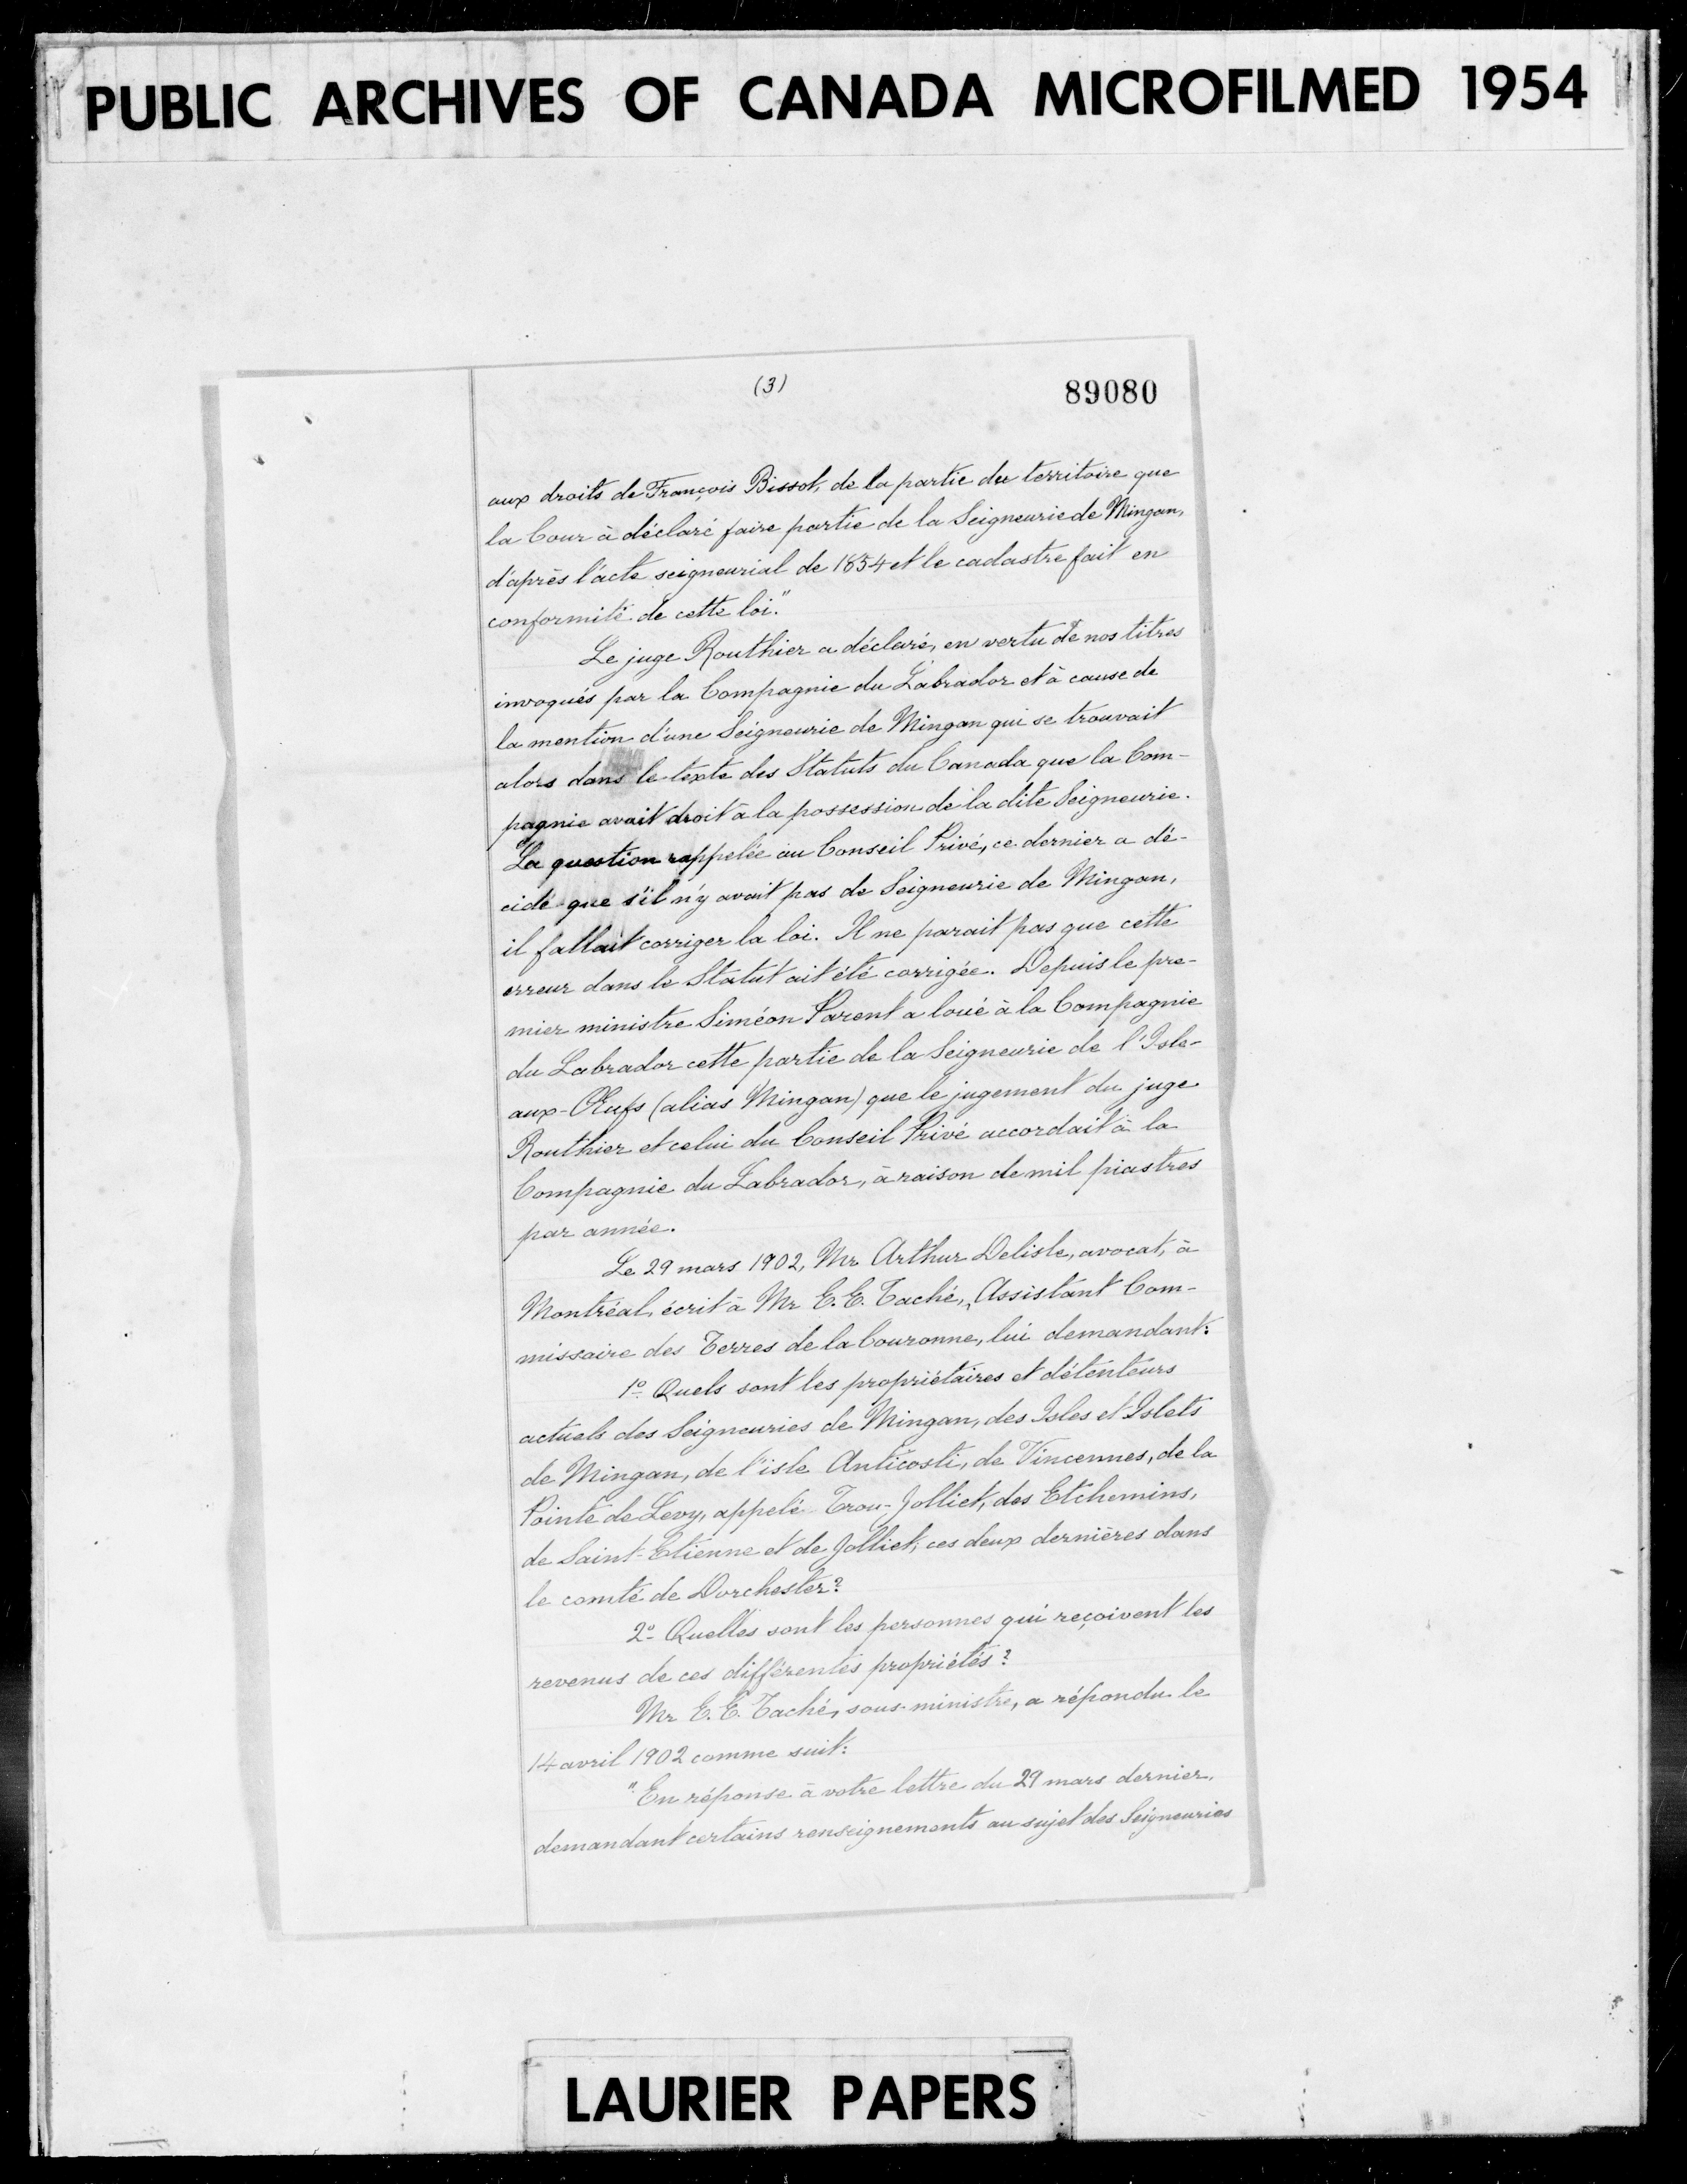 PUBLIC ARCHIVES OF CANADA MICROFILMED 1954
(3)
89080
aux droits de François Bissot, de la partie du territoire que
la Cour à déclaré faire partie de la Seigneurie de Mingan,
d'après l'acte seigneurial de 1854 et le cadastre fait en
conformité de cette loi."
Le juge Routhier a déclaré, en vertu de nos titres
invoqués par la Compagnie du Labrador et à cause de
la mention d'une Seigneurie de Mingan qui se trouvait
alors dans le texte des Statuts du Canada que la Com-
pagnie avait droit à la possession de la dite Seigneurie.
La question rappelée au Conseil Privé, ce dernier a dé-
cidé que s'il n'y avait pas de Seigneurie de Mingan,
il fallait corriger la loi. Il ne parait pas que cette
erreur dans le Statut ait été corrigée. Depuis le pre-
mier ministre Siméon Parent a loué à la Compagnie
du Labrador cette partie de la Seigneurie de l'Isle-
aux-Œufs (alias Mingan) que le jugement du juge
Routhier et celui du Conseil Privé accordait à la
Compagnie du Labrador, à raison de mil piastres
par année.
Le 29 mars 1902, Mr. Arthur Delisle, avocat, à
Montréal, écrit à Mr E. E. Taché, Assistant Com-
missaire des Terres de la Couronne, lui demandant:
1º Quels sont les propriétaires et détenteurs
actuels des Seigneuries de Mingan, des Isles et Islets
de Mingan, de l'isle Anticosti, de Vincennes, de la
Pointe de Levy, appelé Trou-Jolliet, des Etchemins,
de Saint-Etienne et de Jolliet; ces deux dernières dans
le comté de Dorchester?
2º- Quelles sont les personnes qui reçoivent les
revenus de ces différentes propriétés?
Mr E. E. Taché, sous-ministre, a répondu le
14 avril 1902 comme suit:
"En réponse à votre lettre du 29 mars dernier,
demandant certains renseignements au sujet des Seigneuries
LAURIER PAPERS